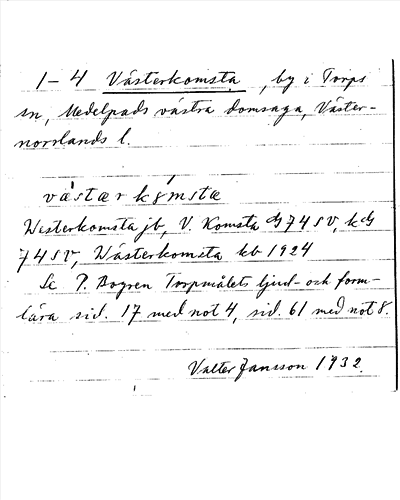 1-4 Västerkomsta, by i Torps
sn, Medelpads västra domsaga, Väster-
norrlands l.
västær kømstæ
Westerkomsta jb, V. Komsta G 74 SV, kG
74 SV, Wästerkomsta kb 1924
Se P. Bogren Torpmålets ljud- och form-
lära sid. 17 med not 4, sid. 61 med not 8.
Valter Jansson 1932.